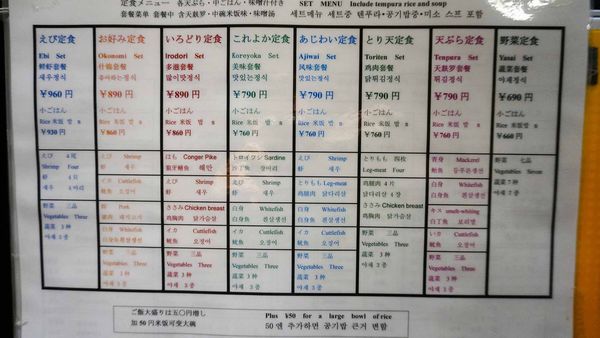 定食メニュー 各天ぷら・中ごはん・味噌汁付き SET MENU Include tempura rice and soup
套餐菜单 套餐中 含天麸罗・中碗米饭味・味噌汤 세트메뉴 세트중 텐푸라・공기밥중・미소 스프 포함
えび定食
Ebi Set
鲜虾套餐
새우정식
￥960 円
小ごはん
Rice 米饭 밥 s
￥930 円
えび 4尾
Shrimp Four
虾 4
새우 4마리
野菜 三品
Vegetables Three
蔬菜 3种
야채 3종
お好み定食
Okonomi Set
什锦套餐
좋아하는정식
￥890 円
小ごはん
Rice 米饭 밥 s
￥860 円
えび Shrimp
虾 새우
イカ Cuttlefish
鱿鱼 오징어
豚 Pork
猪肉 돼지고기
白身 Whitefish
白身鱼 흰살생선
野菜 三品
Vegetables Three
蔬菜 3种
야채 3종
いろどり定食
Irodori Set
多道套餐
많이맛정식
￥890 円
小ごはん
Rice 米饭 밥 s
￥860 円
はも Conger Pike
狼牙鳝鱼 해만
えび Shrimp
虾 새우
ささみ Chicken breast
鸡胸肉 닭가슴살
いか Cuttlefish
鱿鱼 오징어
野菜 三品
Vegetables Three
蔬菜 3种
야채 3종
これよか定食
Koreyoka Set
美味套餐
맛있는정식
￥790 円
小ごはん
Rice 米饭 밥 s
￥760 円
トロイワシ Sardine
沙丁鱼 정어리
えび Shrimp
虾 새우
白身 Whitefish
白身鱼 흰살생선
イカ Cuttlefish
鱿鱼 오징어
野菜 三品
Vegetables Three
蔬菜 3种
야채 3종
あじわい定食
Ajiwai Set
风味套餐
맛있는정식
￥790 円
小ごはん
Rice 米饭 밥 s
￥760 円
えび Shrimp
虾 새우
とりもも Leg-meat
鸡腿肉 닭다리살
白身 Whitefish
白身鱼 흰살생선
イカ Cuttlefish
鱿鱼 오징어
野菜 三品
Vegetables Three
蔬菜 3种
야채 3종
とり天定食
Toriten Set
鸡肉套餐
닭튀김정식
￥790 円
小ごはん
Rice 米饭 밥 s
￥760 円
とりもも 四枚
Leg-meat Four
鸡腿肉 4片
닭다리살 4장
野菜 三品
Vegetables Three
蔬菜 3种
야채 3종
天ぷら定食
Tenpura Set
天麸罗套餐
튀김정식
￥790 円
小ごはん
Rice 米饭 밥 s
￥760 円
青身 Mackerel
鲐鱼 등푸른생선
白身 Whitefish
白身鱼 흰살생선
キス smelt-whiting
白丁鱼 보리멸
いか Cuttlefish
鱿鱼 오징어
野菜 三品
Vegetables Three
蔬菜 3种
야채 3종
野菜定食
Yasai Set
蔬菜套餐
야채정식
￥690 円
小ごはん
Rice 米饭 밥 s
￥660 円
野菜 七品
Vegetables Seven
蔬菜 7种
야채 7종
ご飯大盛りは五〇円増し Plus ¥50 for a large bowl of rice
加 50 円米饭可变大碗 50 엔 추가하면 공기밥 큰거 변함